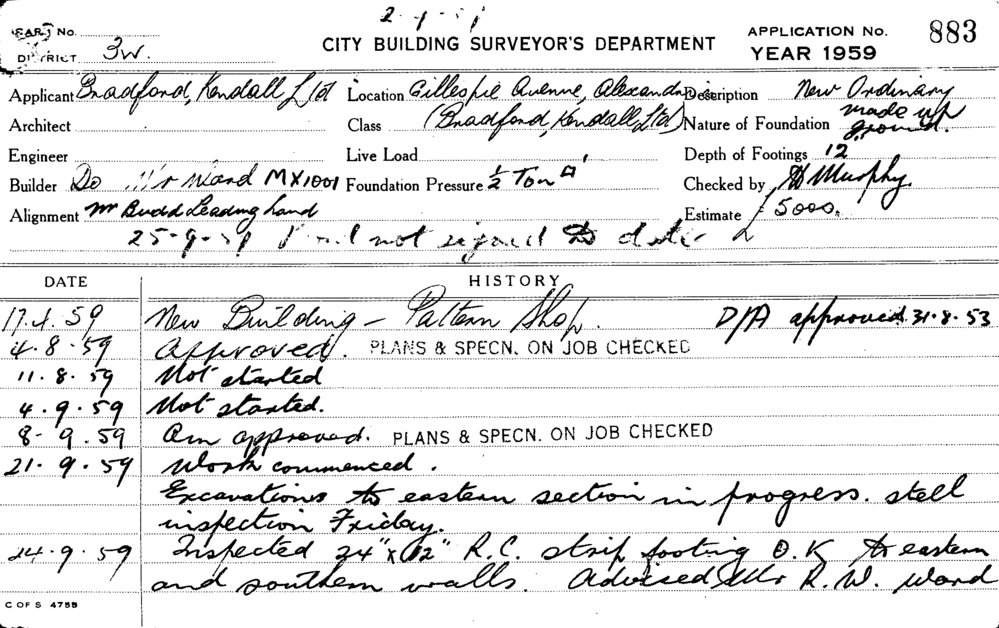 2-9-59
CARD No.
DISTRICT 3W.
CITY BUILDING SURVEYOR'S DEPARTMENT
APPLICATION No. 883
YEAR 1959
Applicant Bradford, Kendall Ltd Location Gillespie Avenue, Alexandria Description New Ordinary
Architect Class (Bradford, Kendall, Ltd) Nature of Foundation made up ground.
Engineer Live Load Depth of Footings 12"
Builder Do Mr Ward MX1001 Foundation Pressure ½ Ton Checked by H Murphy.
Alignment Mr Budd Leading hand Estimate £ 5000.
25-9-59 not signed to date
DATE HISTORY
17.4.59 New Building - Pattern Shop. D/A approved 31.8.53
4.8.59 Approved. PLANS & SPECN. ON JOB CHECKED
11.8.59 Not started
4.9.59 Not started.
8-9.59 Am approved. PLANS & SPECN. ON JOB CHECKED
21.9.59 Work commenced.
Excavations to eastern section in progress. steel
inspection Friday.
24.9.59 Inspected 24" x 12" R.C. strip footing O.K to eastern
and southern walls. Advised Mr R.W. Ward
C OF S 4755